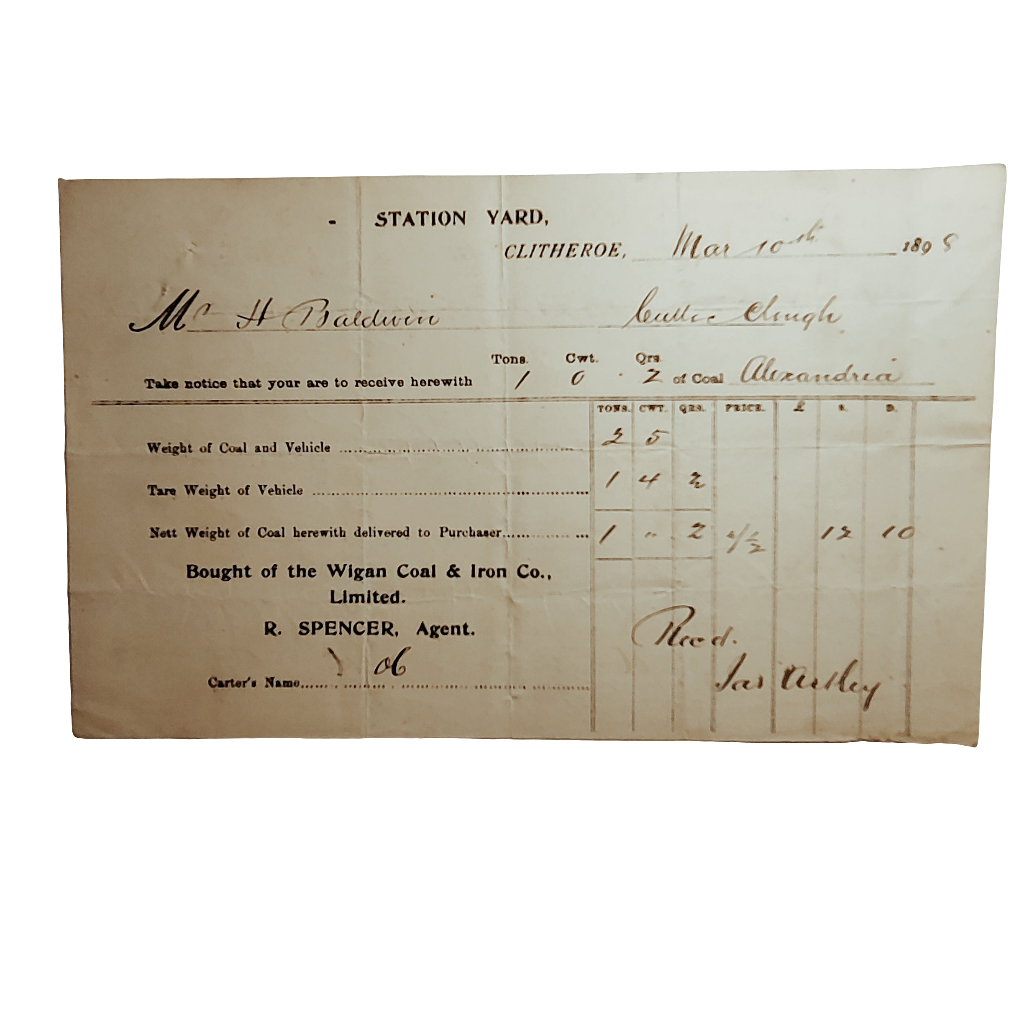 - STATION YARD,
CLITHEROE, Mar 10th 1898
Mr H Baldwin Clough
Tons. Cwt. Qrs.
Take notice that your are to receive herewith 1 0 2 of Coal Alexandria
TONS. CWT. QRS. PRICE. £ s. D.
Weight of Coal and Vehicle 2 5
Tare Weight of Vehicle 1 4 2
Nett Weight of Coal herewith delivered to Purchaser 1 " 2 12 10
Bought of the Wigan Coal & Iron Co.,
Limited.
R. SPENCER, Agent.
Recd.
Carter's Name
Jas Astley